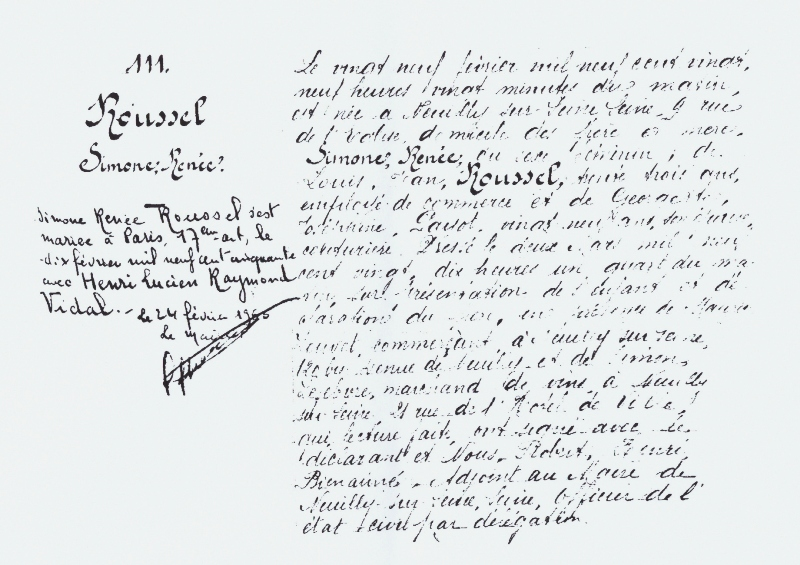 111.
Roussel
Simone, Renée.
Simone Renée Roussel s'est
mariée à Paris, 17em art, le
dix février mil neuf cent cinquante
avec Henri Lucien Raymond
Vidal. - le 24 février 1950
Le maire
Le vingt neuf février mil neuf cent vingt,
neuf heures vingt minutes du matin,
est née à Neuilly sur Seine Seine, 9 rue
de l' domicile des père et mère,
Simone, Renée, du sexe féminin, de
Louis, Jean, Roussel, trente trois ans,
employé de commerce et de Georgette,
vingt neuf ans, son épouse,
couturière. Dressé le deux Mars mil neuf
cent vingt, dix heures un quart du ma-
tin, sur présentation de l'enfant et dé-
claration du père, en présence de
commerçant à Neuilly sur Seine,
avenue de Neuilly et de Simon,
Lefebvre, marchand de vins à Neuilly
sur Seine, 21 rue de l'Hôtel de Ville,
qui, lecture faite, ont signé avec le
déclarant et Nous, Robert, Henri,
Adjoint au Maire de
Neuilly sur Seine, Seine, Officier de l'
état civil par délégation.